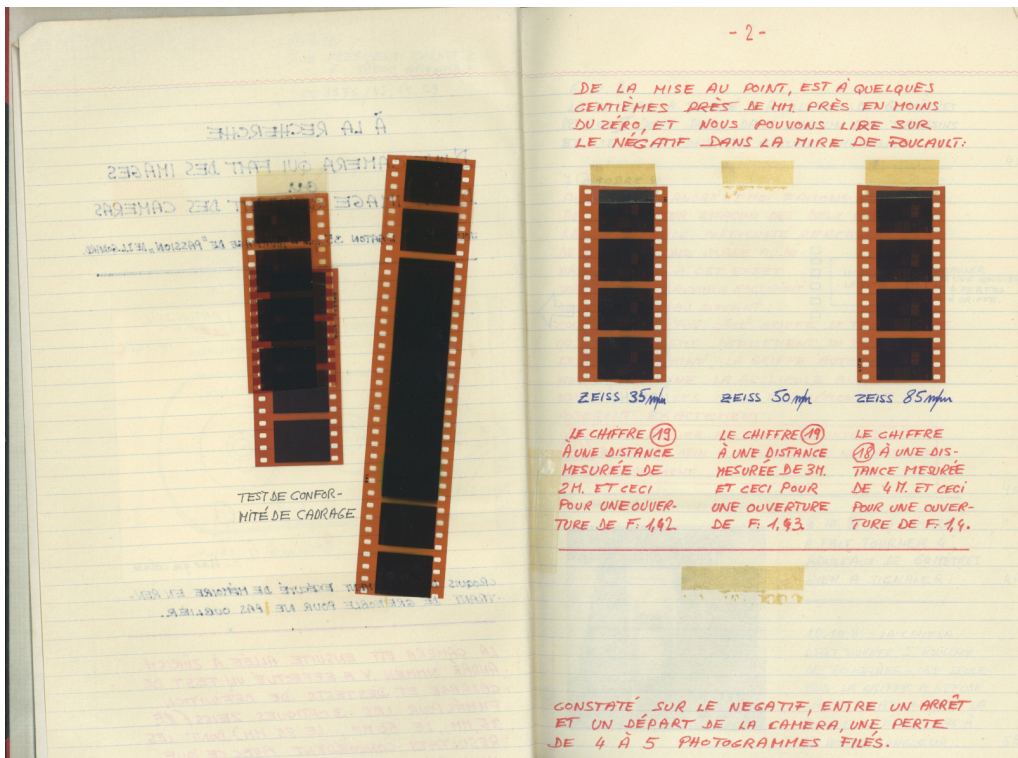 TEST DE CONFOR-
MITÉ DE CADRAGE
- 2 -
DE LA MISE AU POINT, EST À QUELQUES
CENTIÈMES PRÈS DE MM. PRÈS EN MOINS
DU ZÉRO, ET NOUS POUVONS LIRE SUR
LE NÉGATIF DANS LA MIRE DE FOUCAULT:
ZEISS 35 m/m
LE CHIFFRE 19
À UNE DISTANCE
MESURÉE DE
2 M. ET CECI
POUR UNE OUVER-
TURE DE F: 1,42
ZEISS 50 m/m
LE CHIFFRE 19
À UNE DISTANCE
MESURÉE DE 3M.
ET CECI POUR
UNE OUVERTURE
DE F: 1,43
ZEISS 85 m/m
LE CHIFFRE
18 À UNE DIS-
TANCE MESURÉE
DE 4 M. ET CECI
POUR UNE OUVER-
TURE DE F: 1,4.
CONSTATÉ SUR LE NEGATIF, ENTRE UN ARRÊT
ET UN DÉPART DE LA CAMERA, UNE PERTE
DE 4 À 5 PHOTOGRAMMES FILÉS.